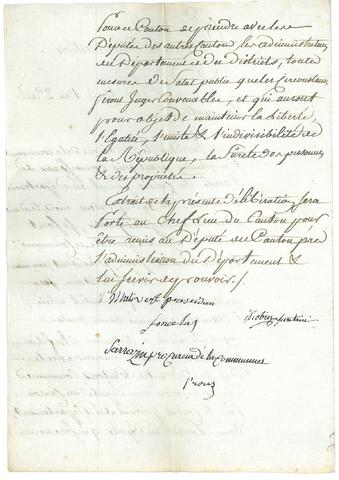 Pour ce Canton de prendre avec les
Députés des autres Cantons, les administrateurs
du Département et des Districts, toute
mesure de salut public que les Circonstances
feront Juger Convenables, et qui auront
pour objet de maintenir la Liberté,
l'Egalité, l'unité & l'indivisibilité de
la République, la Sureté des personnes
& des propriétés.
Extrait de la présente délibération sera
Porté au Chef Lieu du Canton pour
être remis au Député du Canton près
l'administration du Département &
lui servir de pouvoir ./.
président
Sarrazin procureur de la Commune